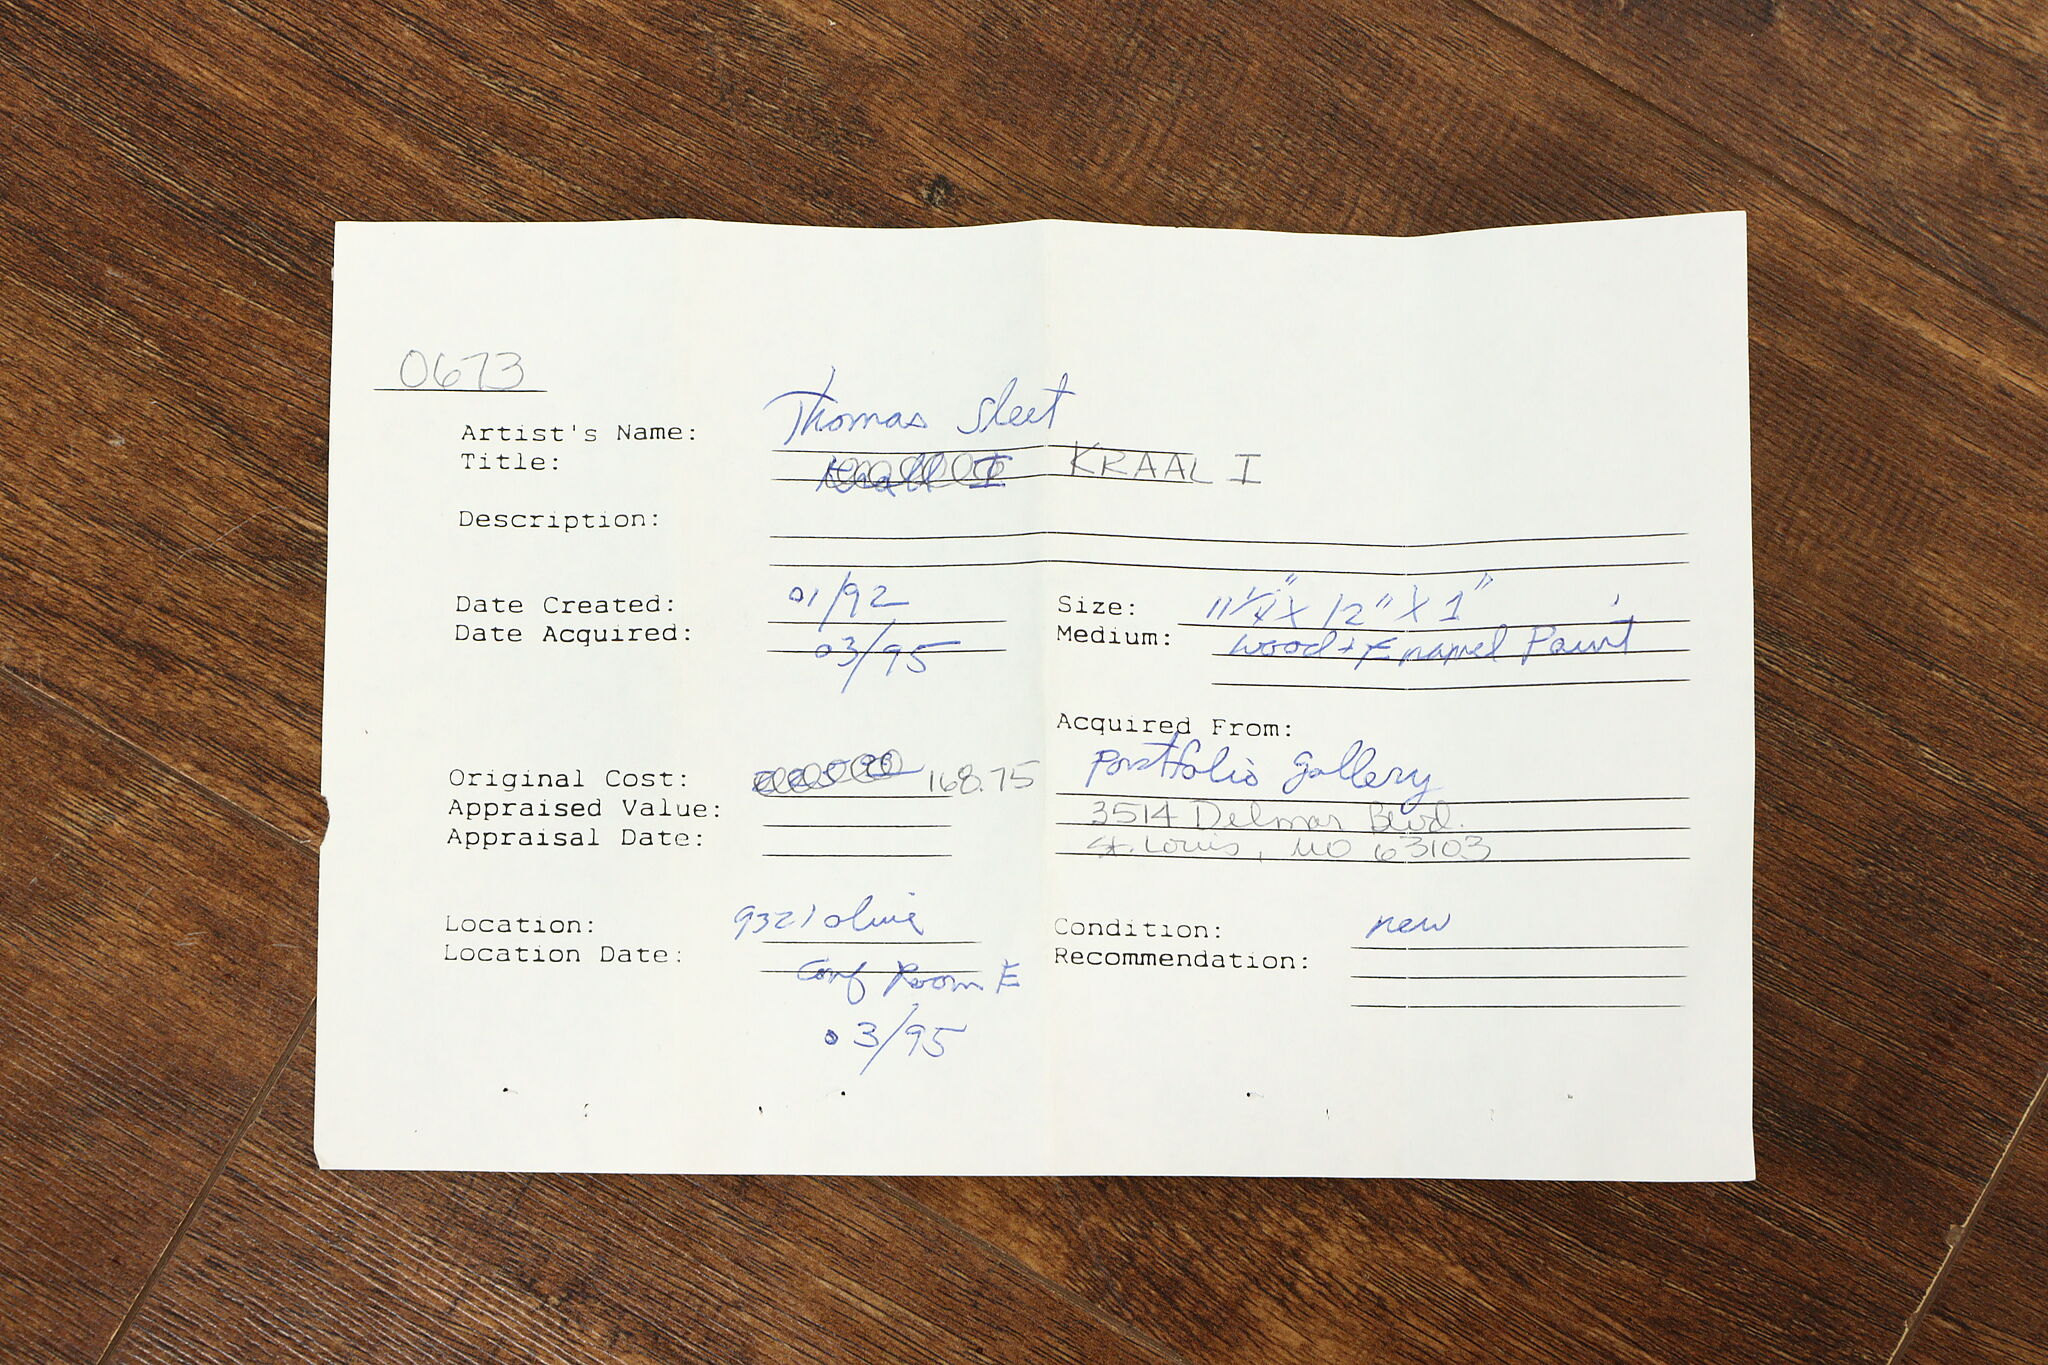 0673
Artist's Name: Thomas Sleet
Title: Krall I KRAAL I
Description:
Date Created: 01/92
Size: 11 1/4" X 12" X 1"
Date Acquired: 03/95
Medium: wood + Enamel Paint
Acquired From:
Portfolio gallery
Original Cost: 168.75
Appraised Value:
3514 Delmar Blvd.
Appraisal Date:
St. Louis, MO 63103
Location: 9321 olive
Condition: new
Location Date: Conf Room E
Recommendation:
03/95